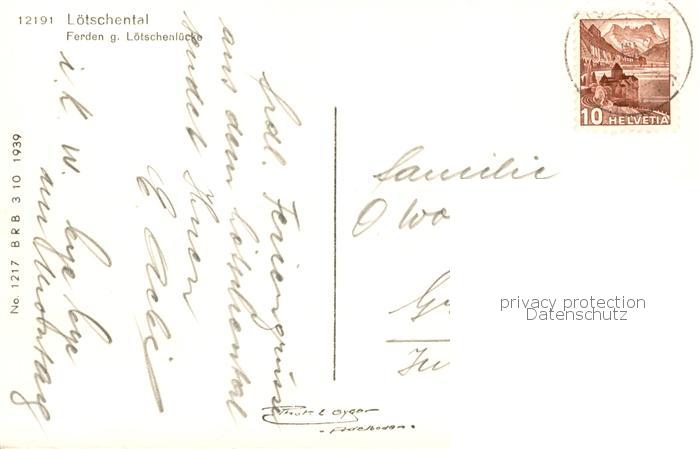 12191 Lötschental
Ferden g. Lötschenlücke
No. 1217 BRB 3 10 1939
frdl. Feriengrüsse
aus dem Lötschental
sendet Ihnen
E. Aebi
i. K. W. bye bye
am Montag
10 HELVETIA
Familie
O Wo
privacy protection
Datenschutz
Gyger
Adelboden